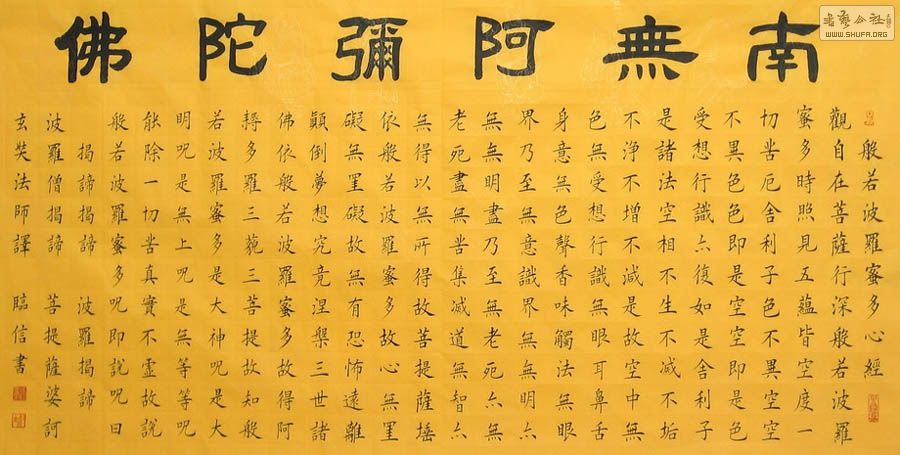 書藝公社
WWW.SHUFA.ORG
南無阿彌陀佛
般若波羅蜜多心經
觀自在菩薩行深般若波羅
蜜多時照見五蘊皆空度一
切苦厄舍利子色不異空空
不異色色即是空空即是色
受想行識亦復如是舍利子
是諸法空相不生不滅不垢
不淨不增不減是故空中無
色無受想行識無眼耳鼻舌
身意無色聲香味觸法無眼
界乃至無意識界無無明亦
無無明盡乃至無老死亦無
老死盡無苦集滅道無智亦
無得以無所得故菩提薩埵
依般若波羅蜜多故心無罣
礙無罣礙故無有恐怖遠離
顛倒夢想究竟涅槃三世諸
佛依般若波羅蜜多故得阿
耨多羅三藐三菩提故知般
若波羅蜜多是大神呪是大
明呪是無上呪是無等等呪
能除一切苦真實不虛故說
般若波羅蜜多呪即說呪曰
揭諦揭諦 波羅揭諦
波羅僧揭諦 菩提薩婆訶
玄奘法師譯 臨信書